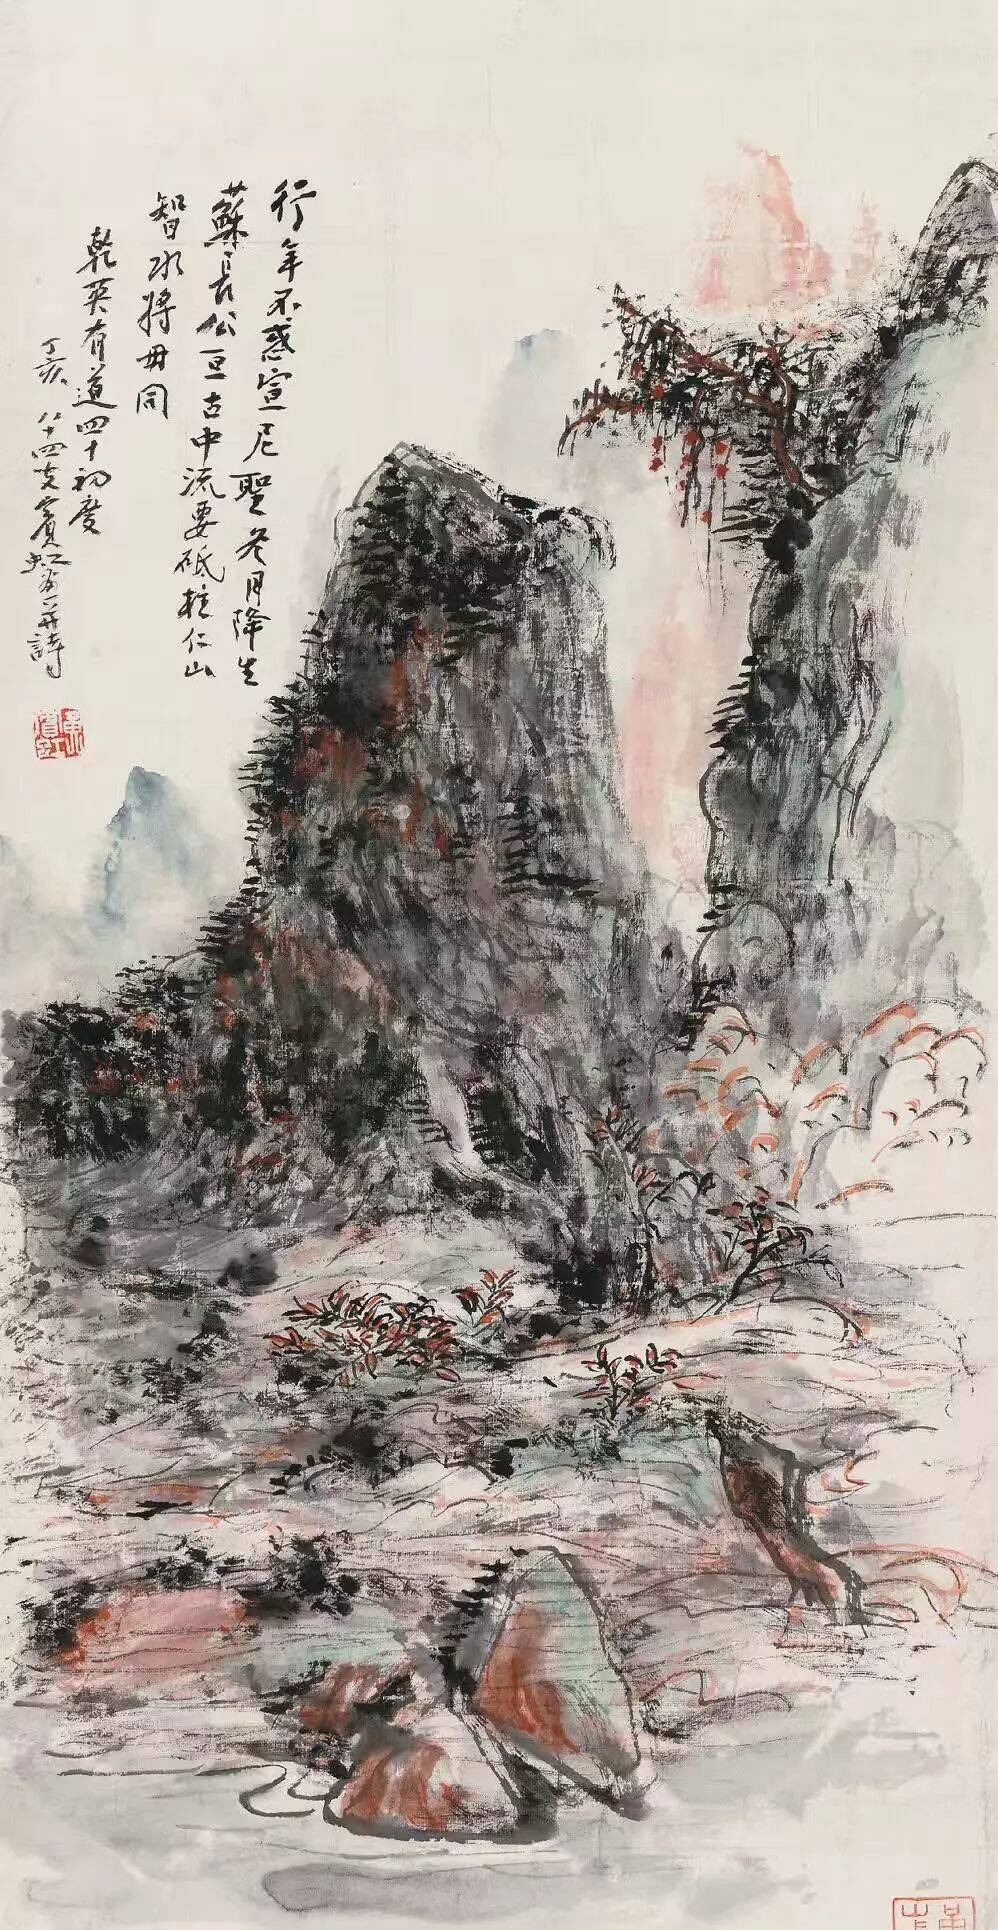 行年不惑宣尼聖冬月降生
蘇長公亘古中流要砥柱仁山
智水將毋同
乾英有道四十初度
丁亥八十四叟賓虹留并詩
黃賓虹